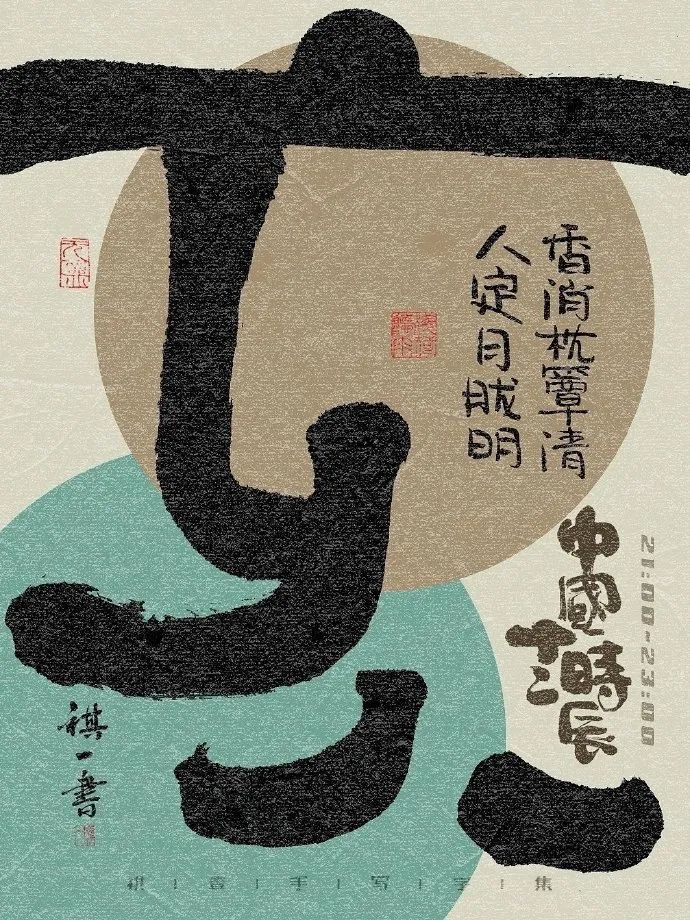 亥
香消枕簟清
人定月胧明
中國
十二時辰
21:00-23:00
祺一書
祺|壹|手|写|字|集